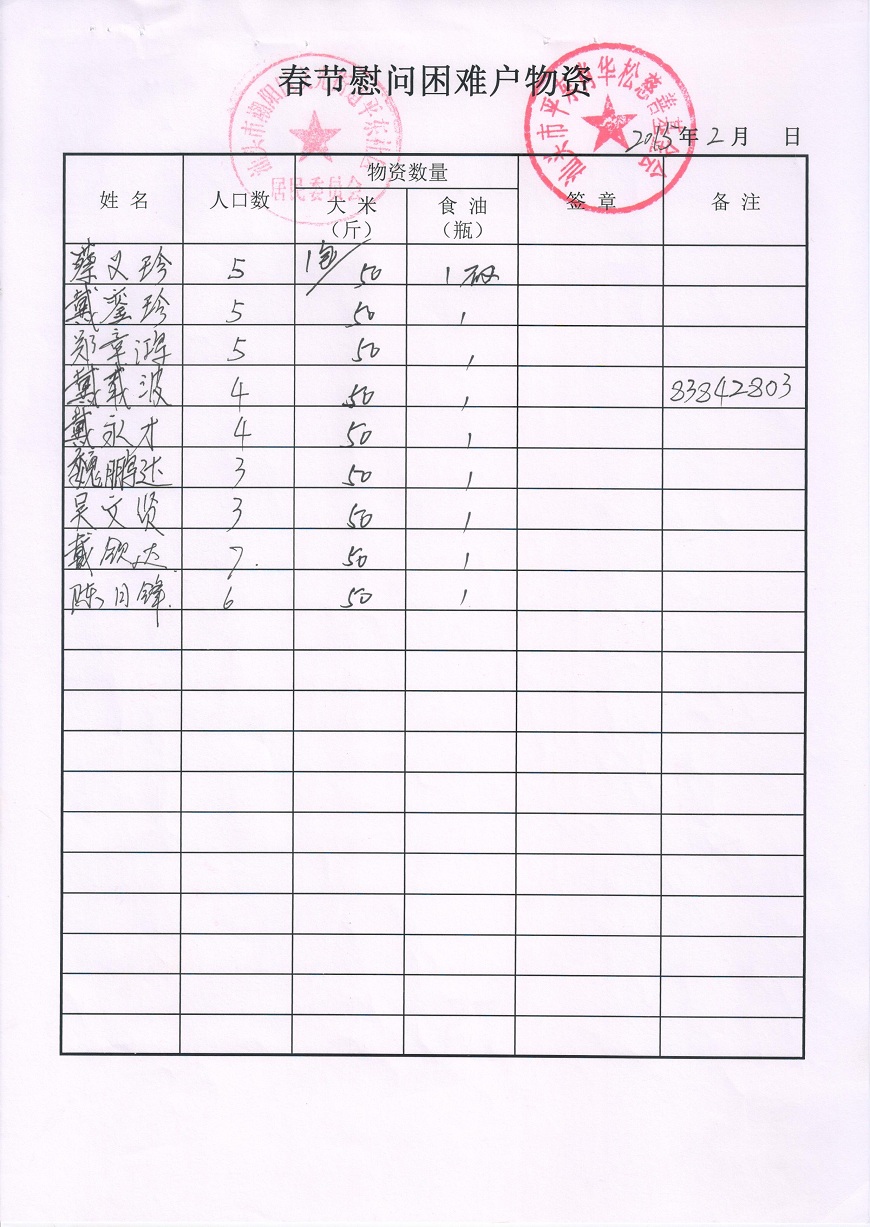 春节慰问困难户物资
汕头市平东肖华松慈善基金会
2015年2月 日
姓名 人口数 物资数量 签章 备注
大米（斤） 食油（瓶）
蔡义珍 5 1包/50 1瓶
戴銮珍 5 50 1
郑章鸿 5 50 1
戴载波 4 50 1 83842803
戴永才 4 50 1
魏鹏达 3 50 1
吴文贤 3 50 1
戴钦达 7. 50 1
陈日锋. 6 50 1